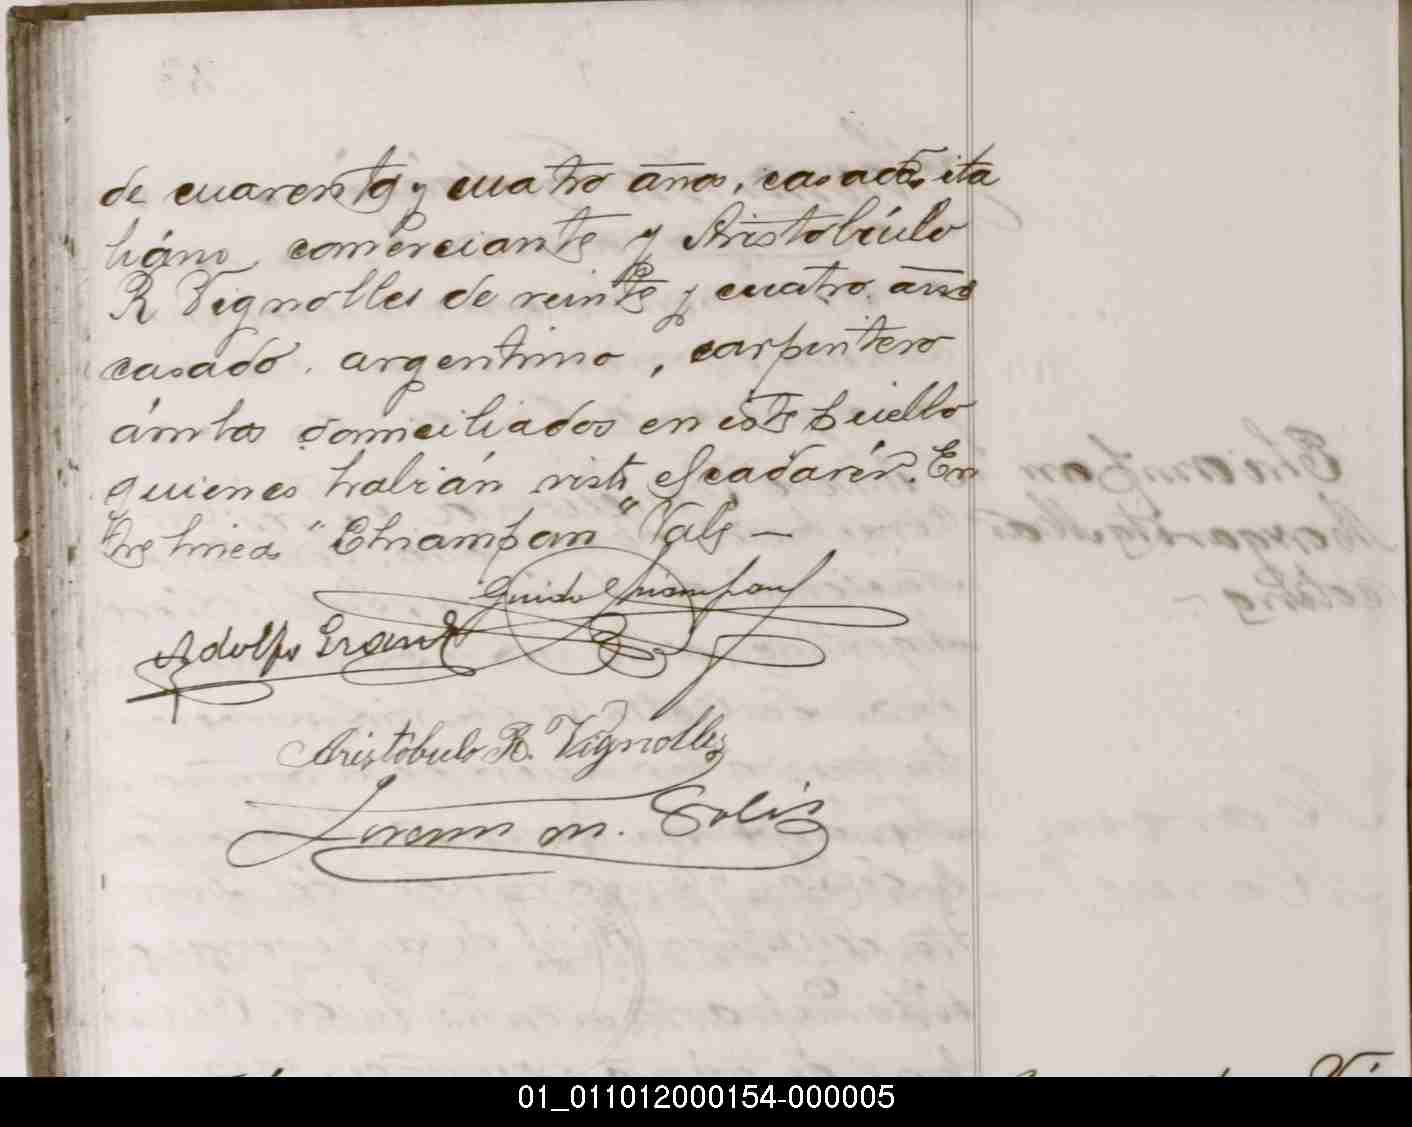 de cuarenta y cuatro años, casado, ita
liáno, comerciante y Aristobúlo
R Vignolles de veinte y cuatro años
casado, argentino, carpintero
ámbos domiciliados en este pueblo
quienes habián visto el cadavér. En
tre linea "Chiampan" Vale —
Guido Chiampan
Adolfo Grant
Aristóbulo R. Vignolles
m. Solis
01_011012000154-000005